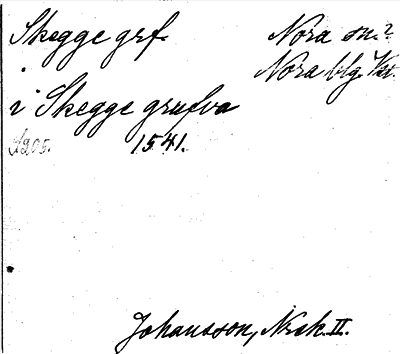 Skegge grf.
Nora sn.?
Nora blg. Vst.
i Skegge grufva
A205. 1541.
Johansson, Nrsk. II.